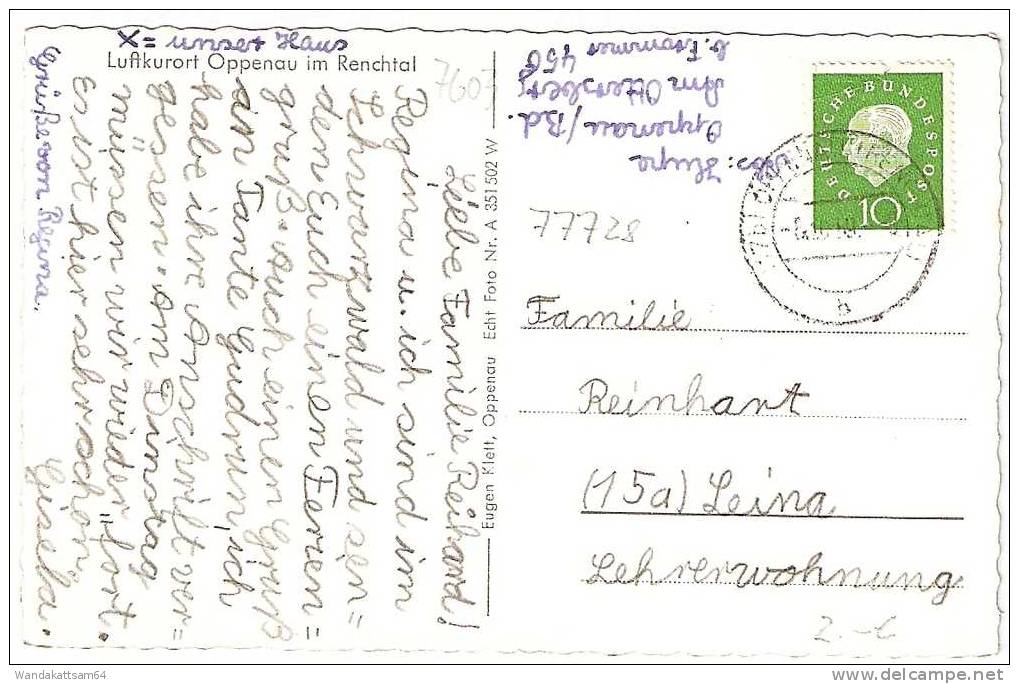 Luftkurort Oppenau im Renchtal
Liebe Familie Reihard!
Regina u. ich sind im
Schwarzwald und sen=
den Euch einen Ferien=
gruß. Auch einen Gruß
an Tante Gudrun, ich
habe ihre Anschrift ver=
gessen. Am Dinstag
müssen wir wieder fort.
Es ist hier sehr schön.
Gisela.
Grüße von Regina.
X=
Haus
Oppenau/Bd.
Am Ottersberg
456
7603
77728
Eugen Klett, Oppenau Echt Foto Nr. A 351502 W
DEUTSCHE BUNDESPOST
10
b
Familie
Reinhart
(15a) Leina
Lehrerwohnung
2.-
Wandakattsam64
delcampe.net